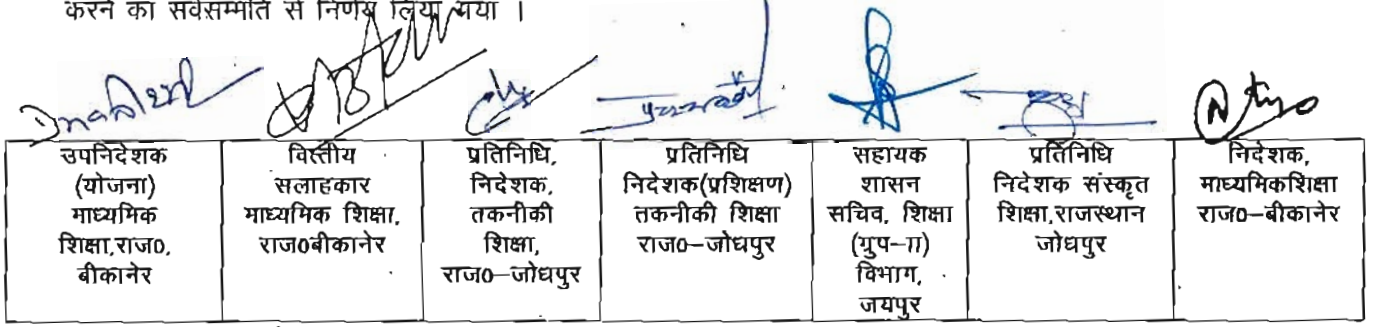 करने का सर्वसम्मति से निर्णय लिया गया ।
उपनिदेशक
(योजना)
माध्यमिक
शिक्षा,राज0,
बीकानेर
वित्तीय
सलाहकार
माध्यमिक शिक्षा,
राज0बीकानेर
प्रतिनिधि,
निदेशक,
तकनीकी
शिक्षा,
राज0–जोधपुर
प्रतिनिधि
निदेशक(प्रशिक्षण)
तकनीकी शिक्षा
राज0–जोधपुर
सहायक
शासन
सचिव, शिक्षा
(ग्रुप–ग)
विभाग,
जयपुर
प्रतिनिधि
निदेशक संस्कृत
शिक्षा,राजस्थान
जोधपुर
निदेशक,
माध्यमिकशिक्षा
राज0–बीकानेर